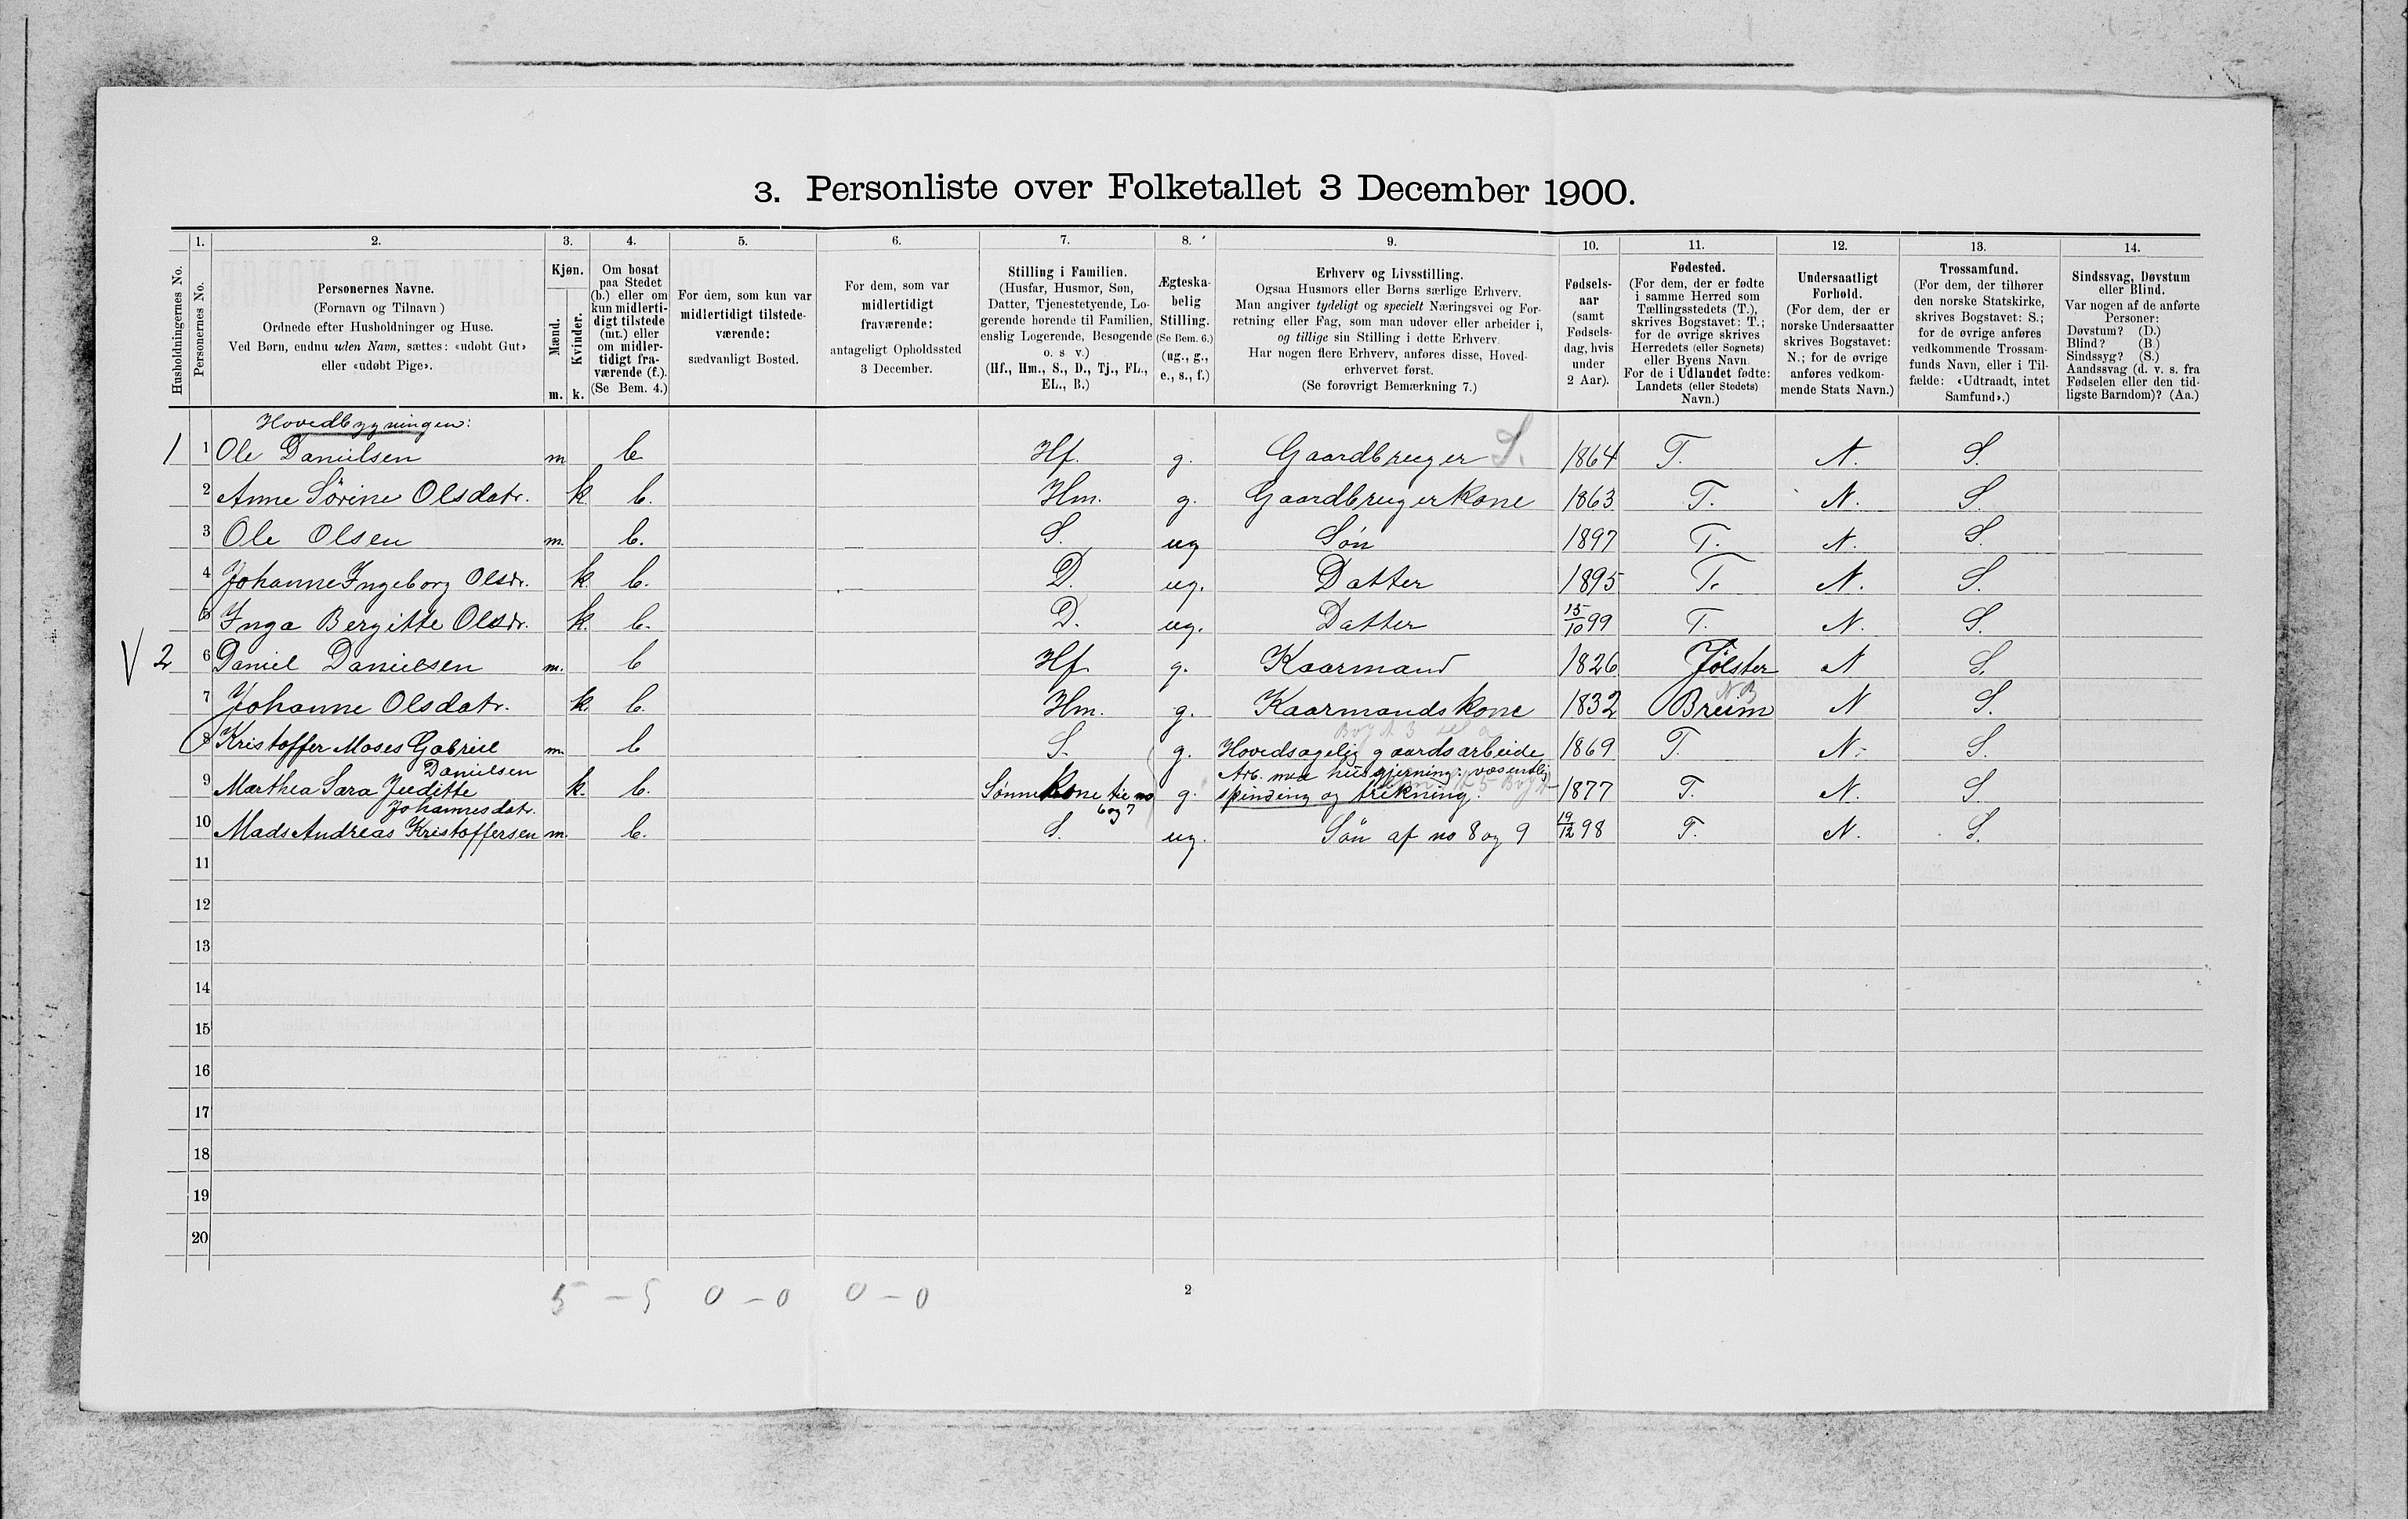 3. Personliste over Folketallet 3 December 1900.
1. 2. 3. 4. 5. 6. 7. 8. 9. 10. 11. 12. 13. 14.
Husholdningernes No.
Personernes No.
Personernes Navne.
(Fornavn og Tilnavn)
Ordnede efter Husholdninger og Huse.
Ved Børn, endnu uden Navn, sættes: «udøbt Gut»
eller «udøbt Pige».
Kjøn.
Mænd.
Kvinder.
m. k.
Om bosat
paa Stedet
(b.) eller om
kun midlerti-
digt tilstede
(mt.) eller
om midler-
tidigt fra-
værende (f.).
(Se Bem. 4.)
For dem, som kun var
midlertidigt tilstede-
værende:
sædvanligt Bosted.
For dem, som var
midlertidigt
fraværende:
antageligt Opholdssted
3 December.
Stilling i Familien.
(Husfar, Husmor, Søn,
Datter, Tjenestetyende, Lo-
gerende hørende til Familien,
enslig Logerende, Besøgende
o. s v.)
(Hf., Hm., S., D., Tj., FL.,
EL., B.)
Ægteska-
belig
Stilling.
(Se Bem. 6.)
(ug., g.,
e., s., f.)
Erhverv og Livsstilling.
Ogsaa Husmors eller Børns særlige Erhverv.
Man angiver tydeligt og specielt Næringsvei og For-
retning eller Fag, som man udøver eller arbeider i,
og tillige sin Stilling i dette Erhverv.
Har nogen flere Erhverv, anføres disse, Hoved-
erhvervet først.
(Se forøvrigt Bemærkning 7.)
Fødsels-
aar
(samt
Fødsels-
dag, hvis
under
2 Aar).
Fødested.
(For dem, der er fødte
i samme Herred som
Tællingsstedets (T.),
skrives Bogstavet: T.;
for de øvrige skrives
Herredets (eller Sognets)
eller Byens Navn.
For de i Udlandet fødte:
Landets (eller Stedets)
Navn.)
Undersaatligt
Forhold.
(For dem, der er
norske Undersaatter
skrives Bogstavet:
N.; for de øvrige
anføres vedkom-
mende Stats Navn.)
Trossamfund.
(For dem, der tilhører
den norske Statskirke,
skrives Bogstavet: S.;
for de øvrige anføres
vedkommende Trossam-
funds Navn, eller i Til-
fælde: «Udtraadt, intet
Samfund».)
Sindssvag, Døvstum
eller Blind.
Var nogen af de anførte
Personer:
Døvstum? (D.)
Blind? (B.)
Sindssyg? (S.)
Aandssvag (d. v. s. fra
Fødselen eller den tid-
ligste Barndom)? (Aa.)
Hovedbygningen:
1 1 Ole Danielsen m b Hf. g. Gaardbruger S. 1864 T. N. S.
2 Anne Sörine Olsdatr. k b. Hm. g. Gaardbrugerkone 1863 T. N. S.
3 Ole Olsen m. b. S. ug Søn 1897 T. N. S.
4 Johanne Ingeborg Olsdr. k b. D. ug. Datter 1895 T. N. S.
5 Inga Bergitte Olsdr. k. b. D. ug. Datter 15/10 99 T. N. S.
V 2 6 Daniel Danielsen m. b Hf g. Kaarmand 1826 Jölster N S.
7 Johanne Olsdatr. k. b. Hm. g. Kaarmandskone 1832 Breim N S.
8 Kristoffer Moses Gabriel m. b S. g. Hovedsagelig gaardsarbeide 1869 T. N. S.
Danielsen
Arb. med husgjerning: væsentlig
9 Marthea Sara Juditte k. b. Sønnekone til no g. spinding og strikning. 1877 T. N. S.
Johannesdatr. 6 og 7
10 Mads Andreas Kristoffersen m. b. S. ug. Søn af no 8 og 9 19/12 98 T. N. S.
11
12
13
14
15
16
17
18
19
20
5 – 5 0 – 0 0 – 0
2